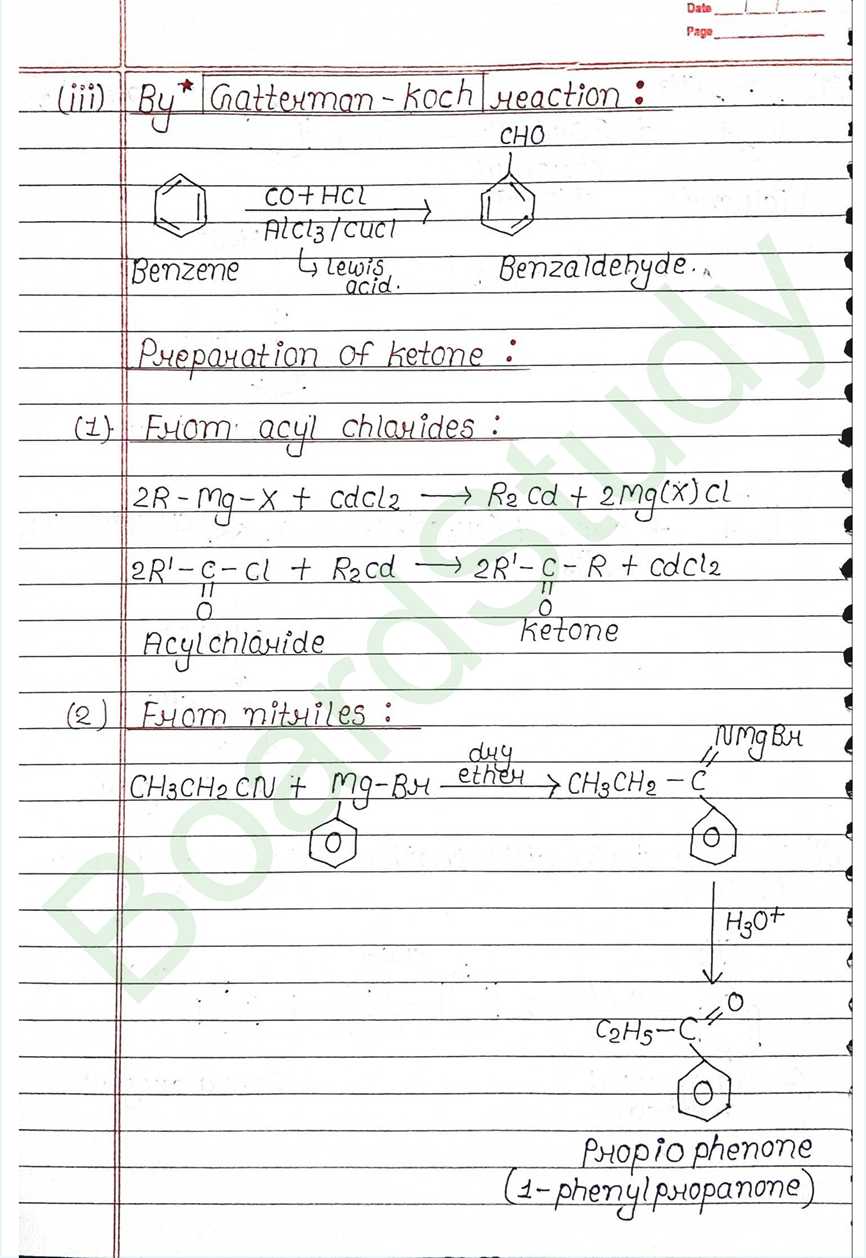 Date
Page
(iii) By* Gatterman-Koch reaction :
CHO
CO+HCl
AlCl3/CuCl
Benzene ↳ Lewis acid. Benzaldehyde.
Preparation of ketone :
(1) From acyl chlorides :
2R-Mg-X + CdCl2 ⟶ R2Cd + 2Mg(X)Cl
2R'-C-Cl + R2Cd ⟶ 2R'-C-R + CdCl2
O O
Acylchloride Ketone
(2) From nitriles :
NMgBr
CH3CH2CN + Mg-Br dry ether ⟶ CH3CH2-C
H3O+
O
C2H5-C
Propiophenone
(1-phenylpropanone)
BoardStudy